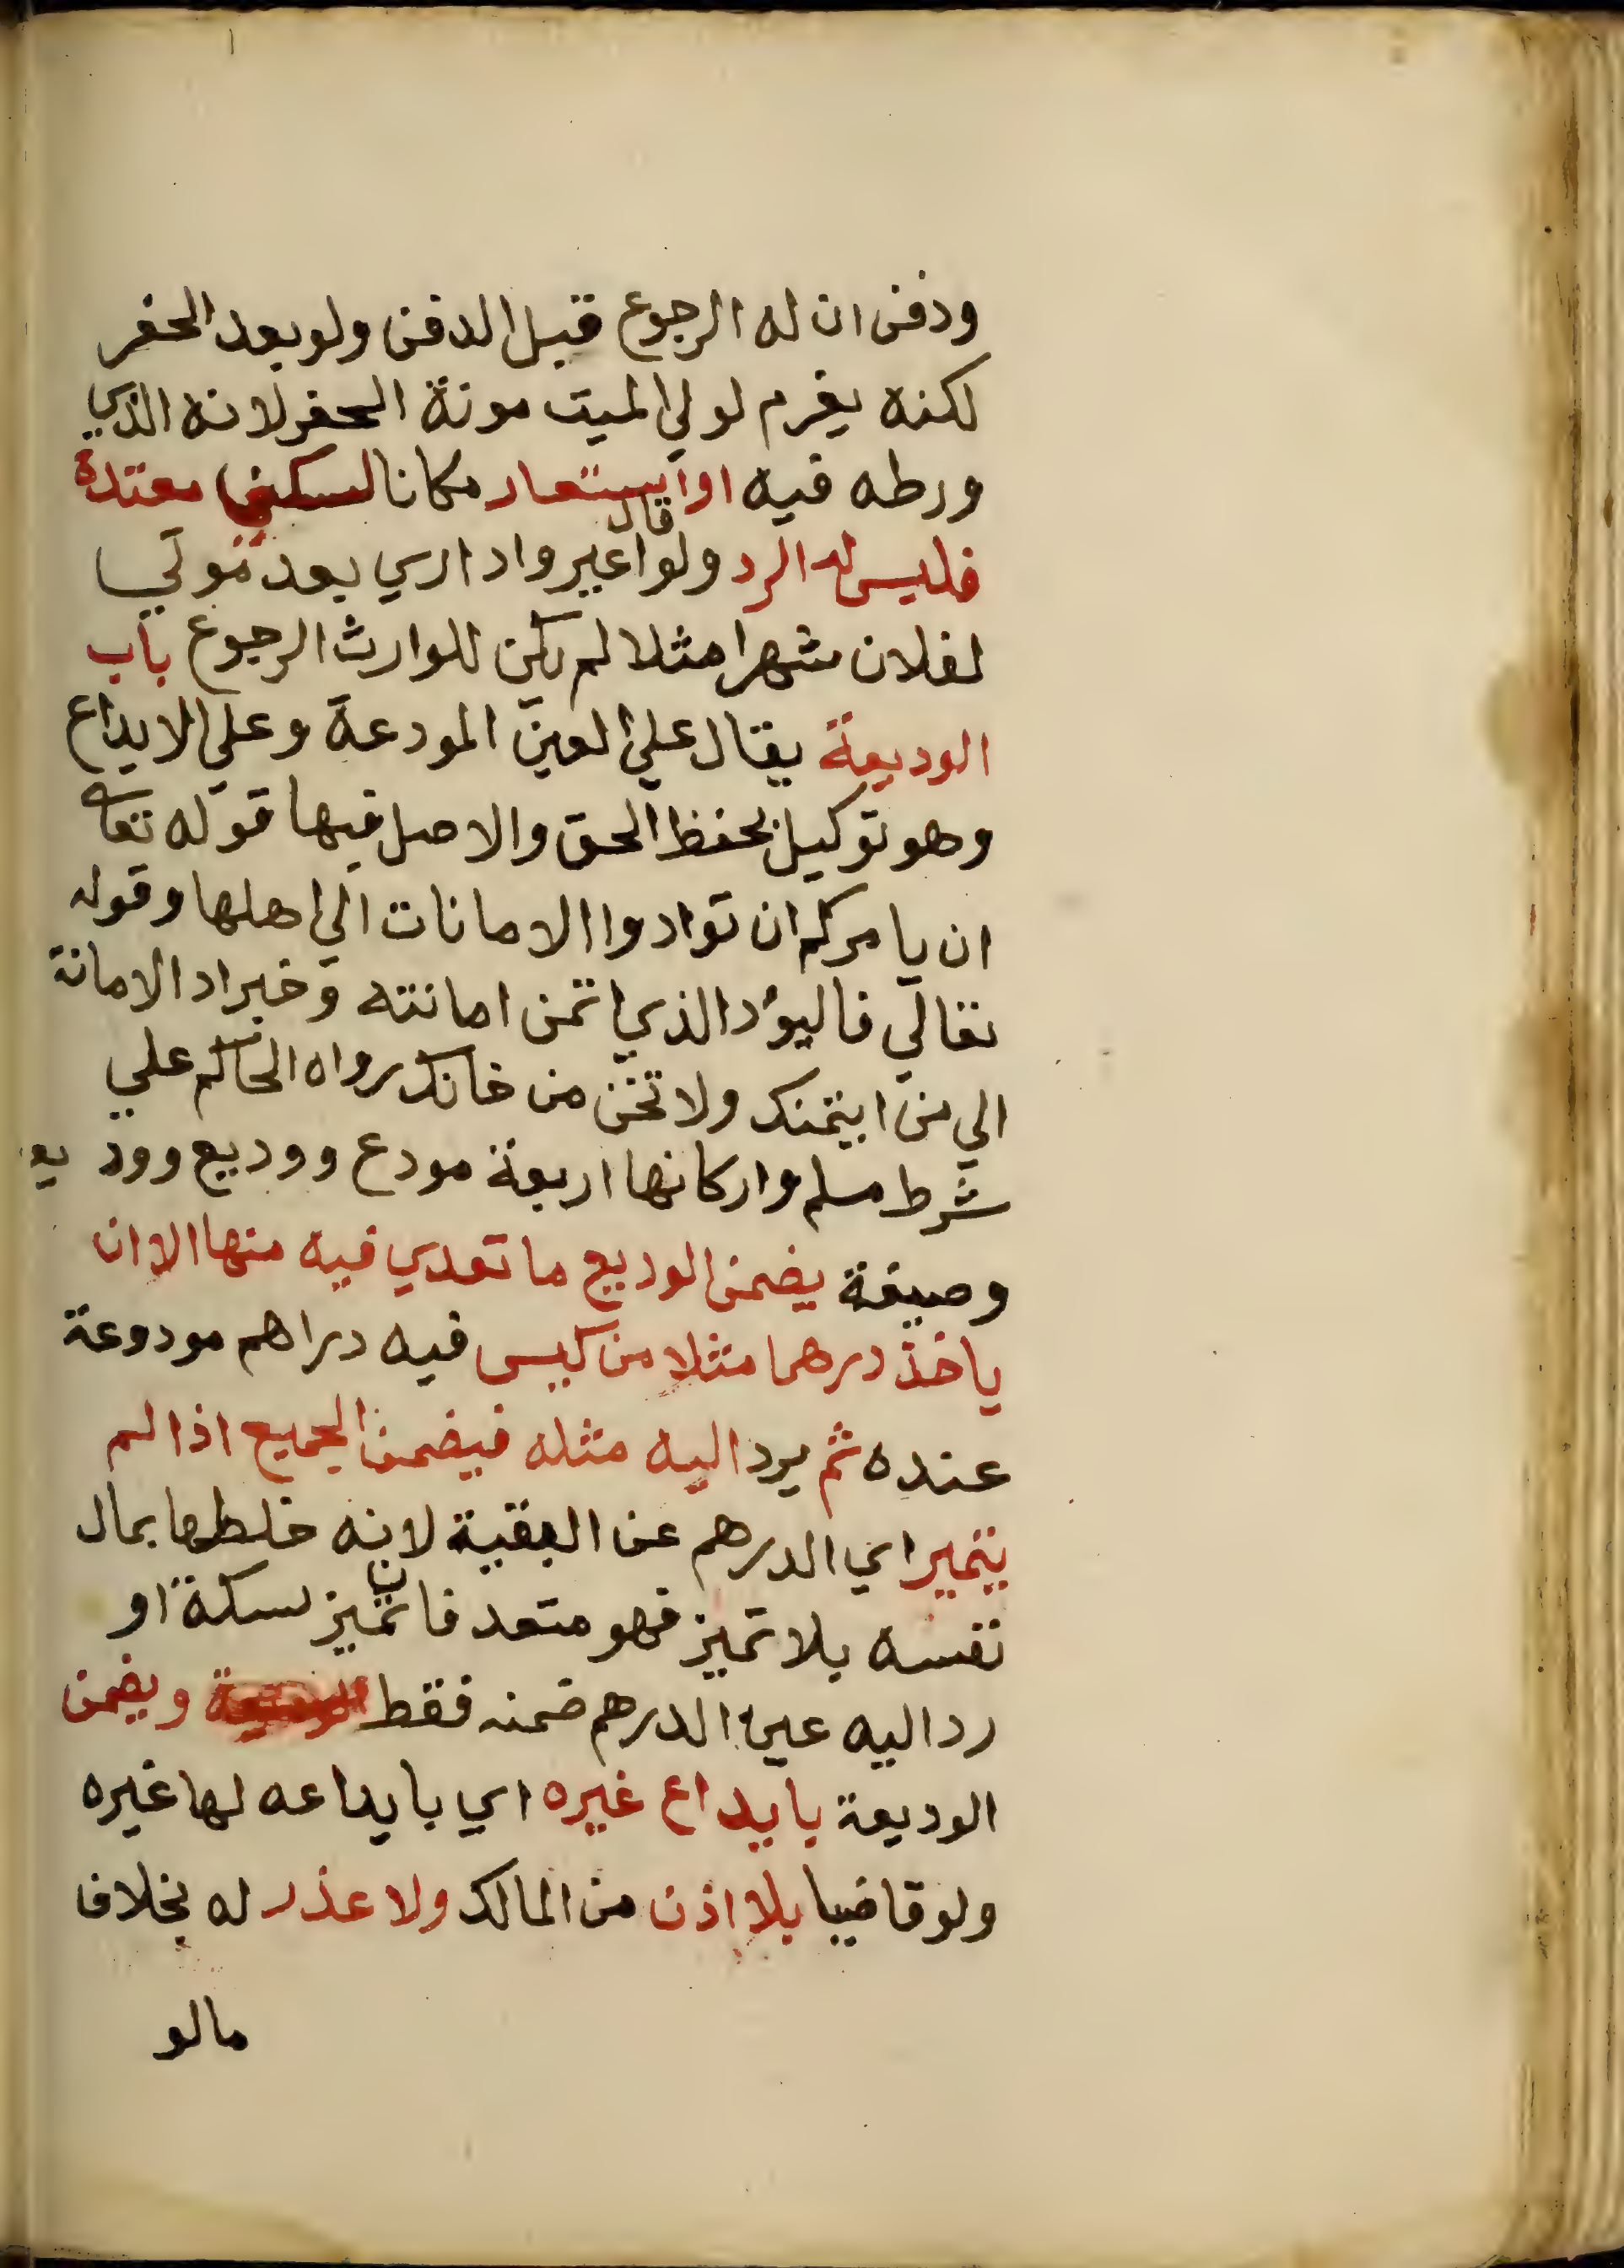 ودفن ان له الرجوع قبل الدفن ولو بعد الحفر
لكنه يغرم لولي الميت مونة الحفر لانه الذي
ورطه فيه او استعار مكانا لسكني معتدة
فليس له الرد ولو قال اعيروا داري بعد موتي
لفلان شهرا مثلا لم يكن للوارث الرجوع باب
الوديعة يقال علي العين المودعة وعلي الايداع
وهو توكيل بحفظ الحق والاصل فيها قوله تعا
ان يامركم ان توادوا الامانات الي اهلها وقوله
تعالي فاليؤد الذي اتمن امانته وخبر اد الامانة
الي من ايتمنك ولا تخن من خانك رواه الحاكم علي
شرط مسلم واركانها اربعة مودع ووديع وود يع
وصيغة يضمن الوديع ما تعدي فيه منها الا ان
ياخذ درهما مثلا من كيس فيه دراهم مودوعة
عنده ثم يرد اليه مثله فيضمن الجميع اذا لم
يتميز اي الدرهم عن البقية لانه خلطها بمال
نفسه بلا تميز فهو متعد فان تميز بسكة او
رد اليه عين الدرهم ضمنه فقط ويضمن
الوديعة بايداع غيره اي بايداعه لها غيره
ولو قاضيا بلا اذن من المالك ولا عذر له بخلاف
مالو